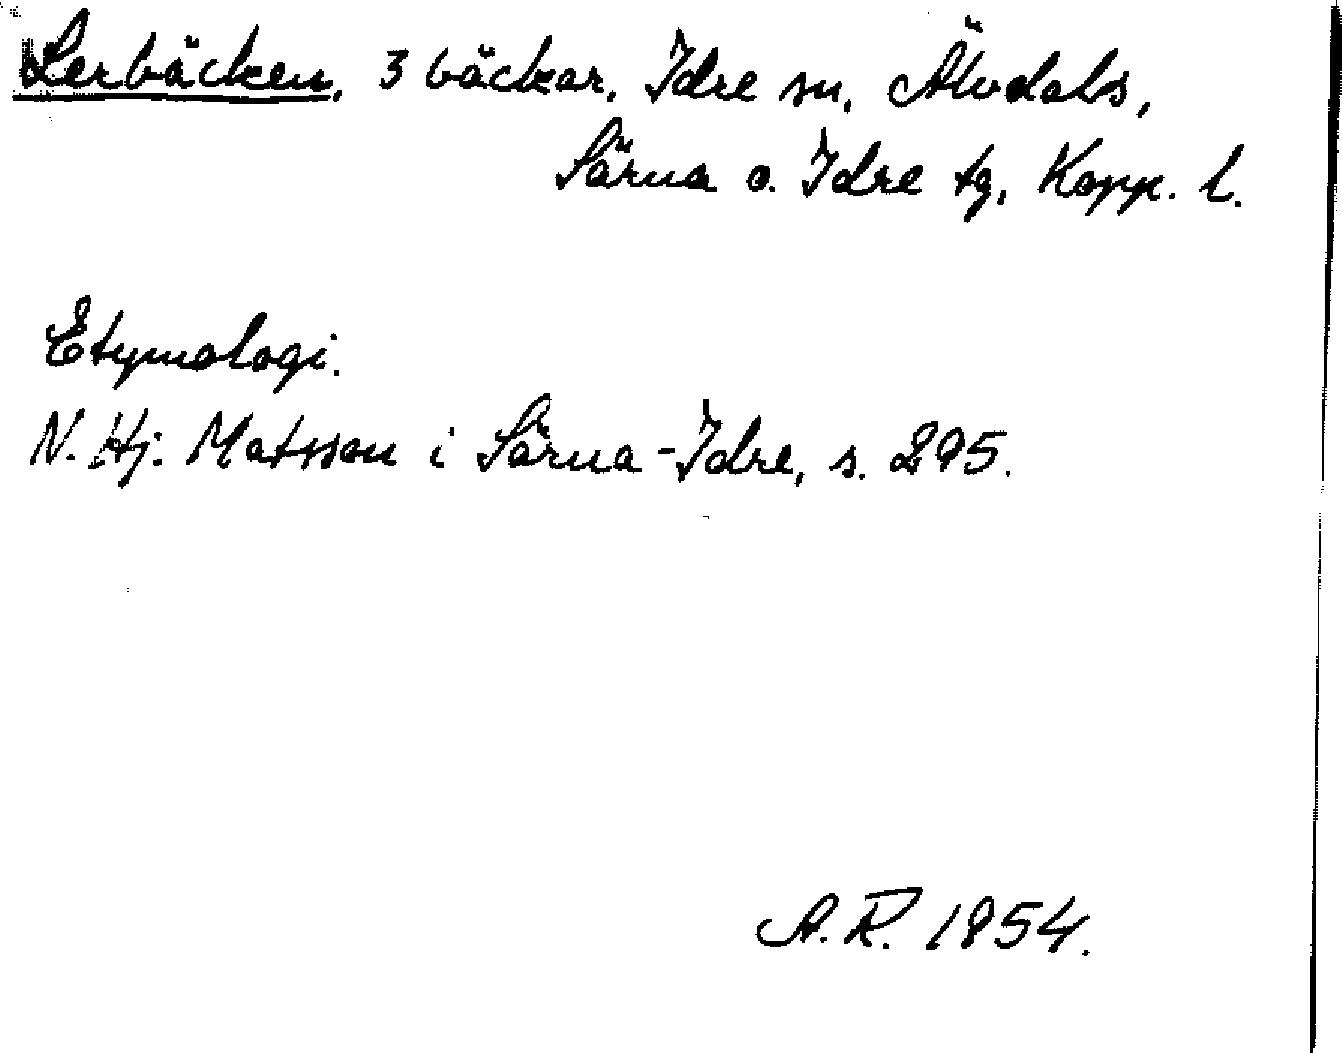 Lerbäcken, 3 bäckar, Idre sn, Älvdals,
Särna o. Idre tg, Kopp. l.
Etymologi.
N. Hj. Matsson i Särna-Idre, s. 295.
A. R. 1954.